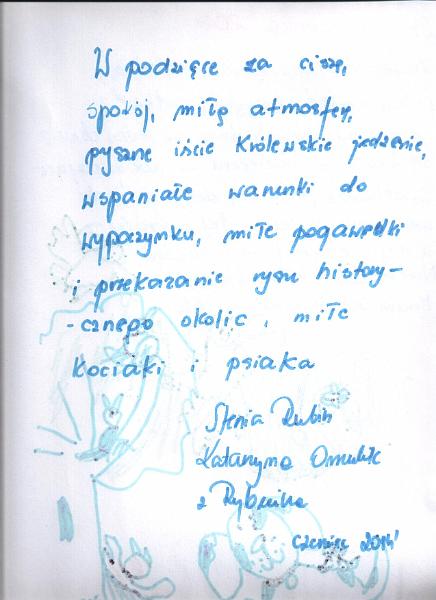 W podzięce za ciszę,
spokój, miłą atmosferę,
pyszne iście Królewskie jedzenie,
wspaniałe warunki do
wypoczynku, miłe pogawędki
i przekazanie rysu history-
-cznego okolic, miłe
kociaki i psiaka
Stenia Rubin
Katarzyna
z Rybnika
czerwiec 2014